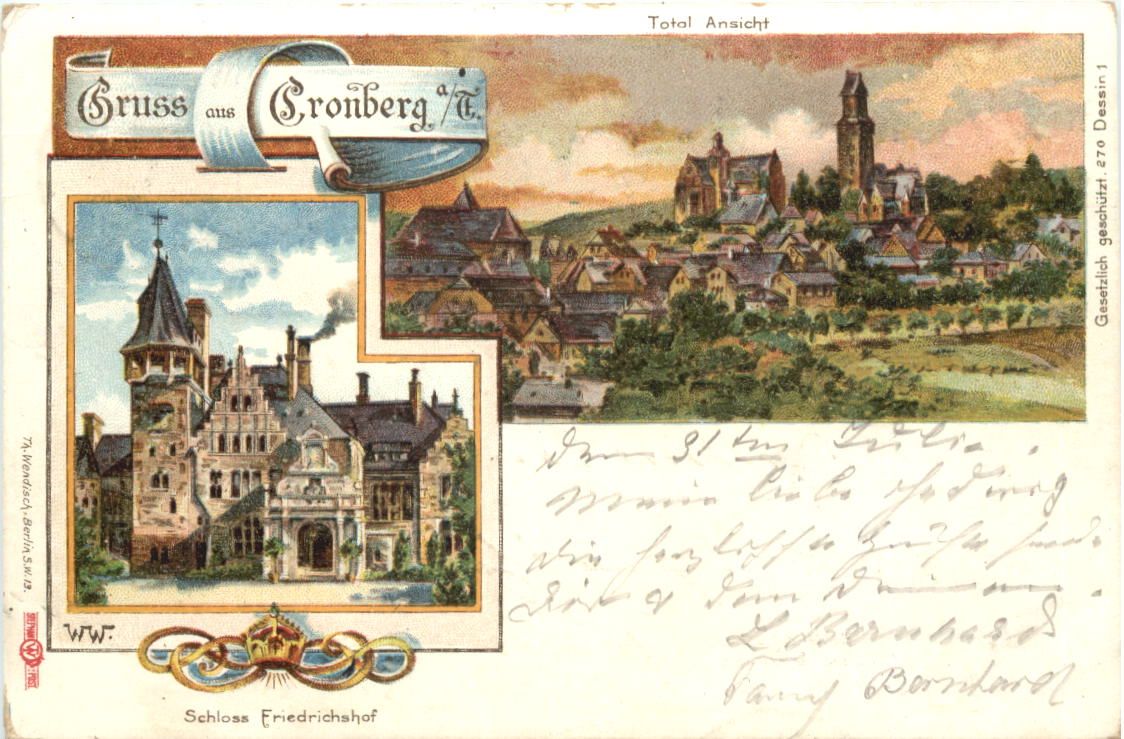 Total Ansicht
Gruss aus Cronberg a/T.
Gesetzlich geschützt. 270 Dessin 1
Th. Wendisch, Berlin S.W. 13.
WW.
Schloss Friedrichshof
den 31ten Juli.
Meine liebe
die herzlichsten Grüße
Dir & dem
L Bernhard
Fanny Bernhard